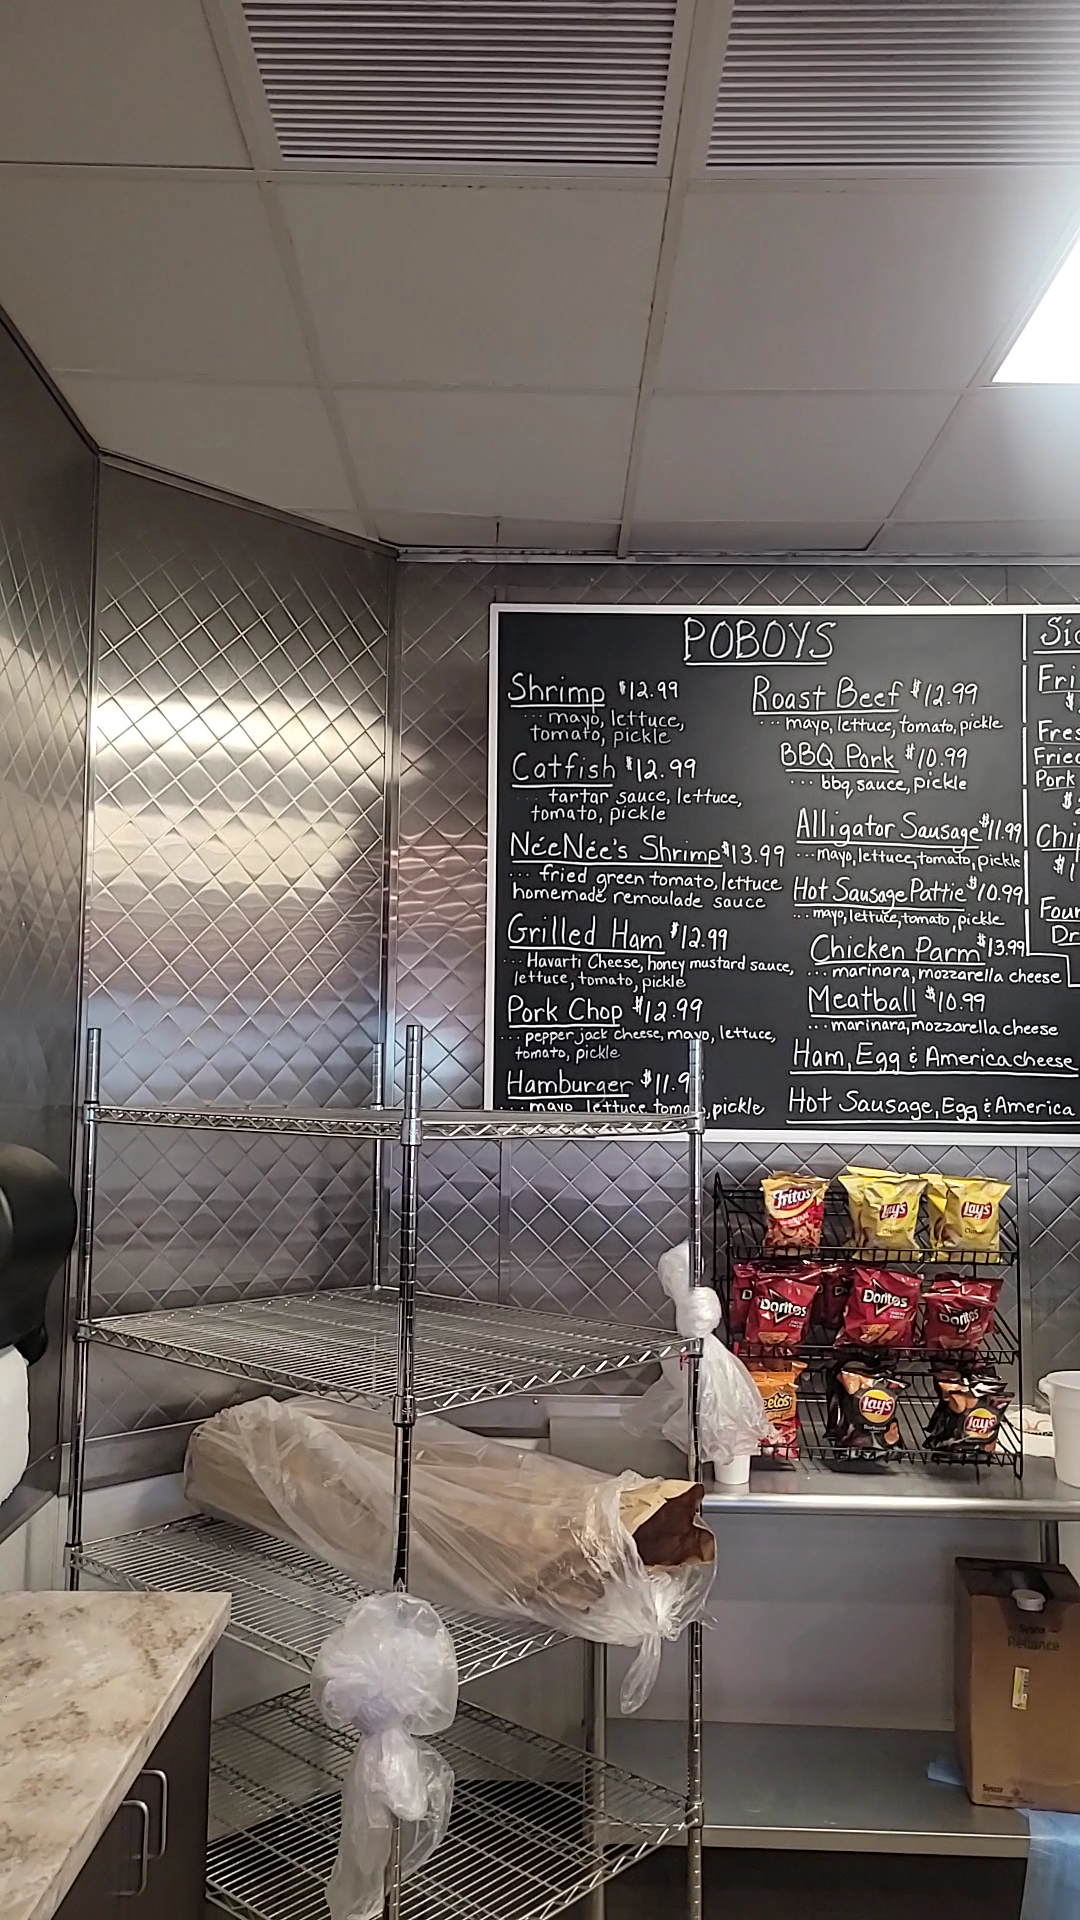 POBOYS
Shrimp $12.99
... mayo, lettuce,
tomato, pickle
Catfish $12.99
... tartar sauce, lettuce,
tomato, pickle
NéeNée's Shrimp $13.99
... fried green tomato, lettuce
homemade remoulade sauce
Grilled Ham $12.99
... Havarti Cheese, honey mustard sauce,
lettuce, tomato, pickle
Pork Chop $12.99
... pepper jack cheese, mayo, lettuce,
tomato, pickle
Hamburger $11.9
... mayo, lettuce, tomato, pickle
Roast Beef $12.99
... mayo, lettuce, tomato, pickle
BBQ Pork $10.99
... bbq sauce, pickle
Alligator Sausage $11.99
... mayo, lettuce, tomato, pickle
Hot Sausage Pattie $10.99
... mayo, lettuce, tomato, pickle
Chicken Parm $13.99
... marinara, mozzarella cheese
Meatball $10.99
... marinara, mozzarella cheese
Ham, Egg & America cheese
Hot Sausage, Egg & America
Sid
Fri
$
Fres
Fried
Pork
$
Chip
$1
Foun
Dr
Fritos
Lays
Lays
Doritos
Doritos
Doritos
eetos
Lays
Lays
Sysco
Reliance
Sysco